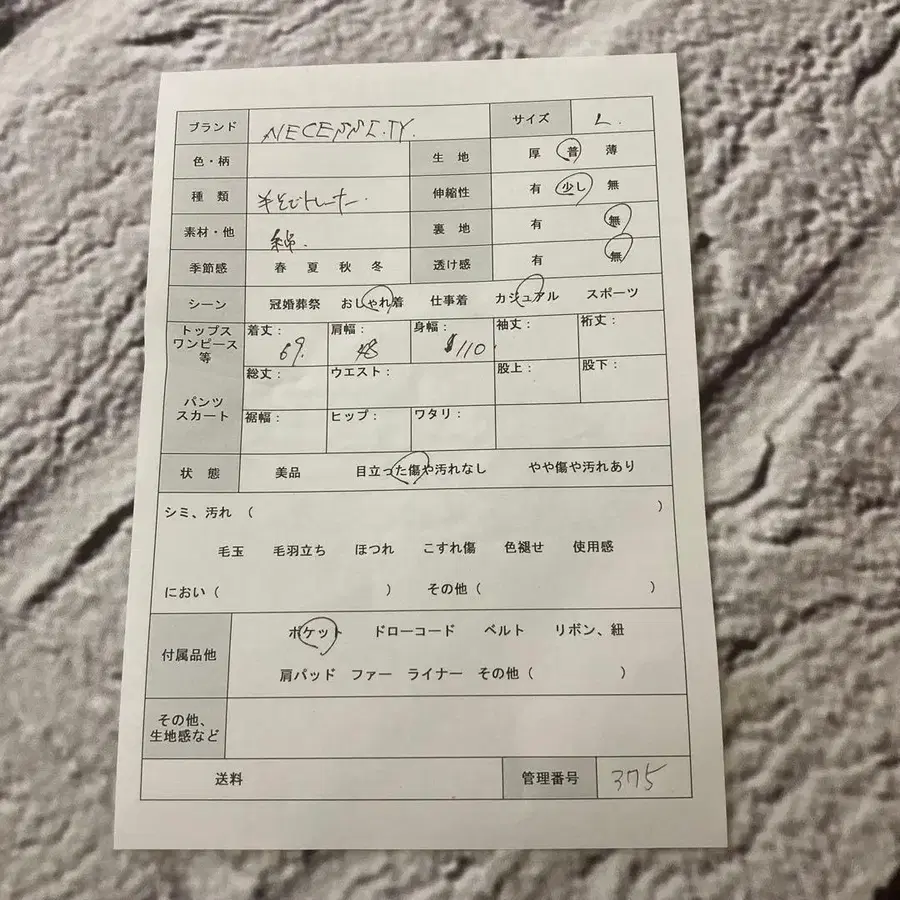 ブランド NECESSITY. サイズ L.
色・柄 生地 厚 普 薄
種類 半そでトレーナー. 伸縮性 有 少し 無
素材・他 綿. 裏地 有 無
季節感 春 夏 秋 冬 透け感 有 無
シーン 冠婚葬祭 おしゃれ着 仕事着 カジュアル スポーツ
トップス ワンピース 等 着丈: 69. 肩幅: 48 身幅: 110. 袖丈: 裄丈:
パンツ スカート 総丈: ウエスト: 股上: 股下:
裾幅: ヒップ: ワタリ:
状態 美品 目立った傷や汚れなし やや傷や汚れあり
シミ、汚れ ( )
毛玉 毛羽立ち ほつれ こすれ傷 色褪せ 使用感
におい ( ) その他 ( )
付属品他 ポケット ドローコード ベルト リボン、紐
肩パッド ファー ライナー その他 ( )
その他、
生地感など
送料 管理番号 375